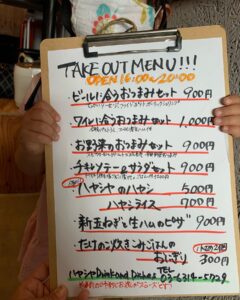 TAKE OUT MENU!!!
OPEN 16:00~20:00
・ビールに合うおつまみセット 900円
・ワインに合うおつまみセット 1,000円
・お野菜のおつまみセット 900円
・チキンソテー&サラダセット 900円
・ハヤシヤのハヤシ 500円
ハヤシライス 700円
・新玉ねぎと生ハムのピザ 900円
・たけのこ炊きこみごはんの
おにぎり 300円
ハヤシヤ Drink and Dishes TEL
03-6314-5729